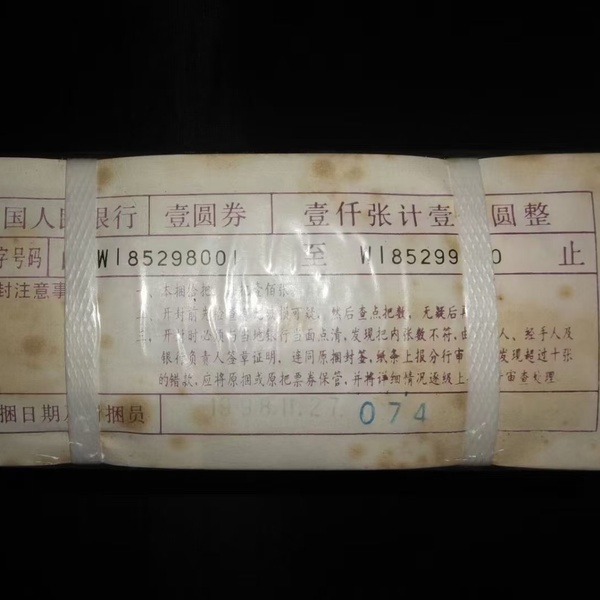 国人民银行 壹圆券 壹仟张计壹 圆整
字号码 WI85298001 至 WI85299 0 止
封注意事 一、本捆 把
二、开封前 可疑，然后查点把数，无疑后
三、开封时必须与当地银行当面点清，发现把内张数不符，由 人、经手人及
银行负责人签章证明、连同原捆封签，纸条上报分行审 发现超过十张
的错款，应将原捆或原把票券保管，并将详细情况逐级上 审查处理
捆日期 捆员 074